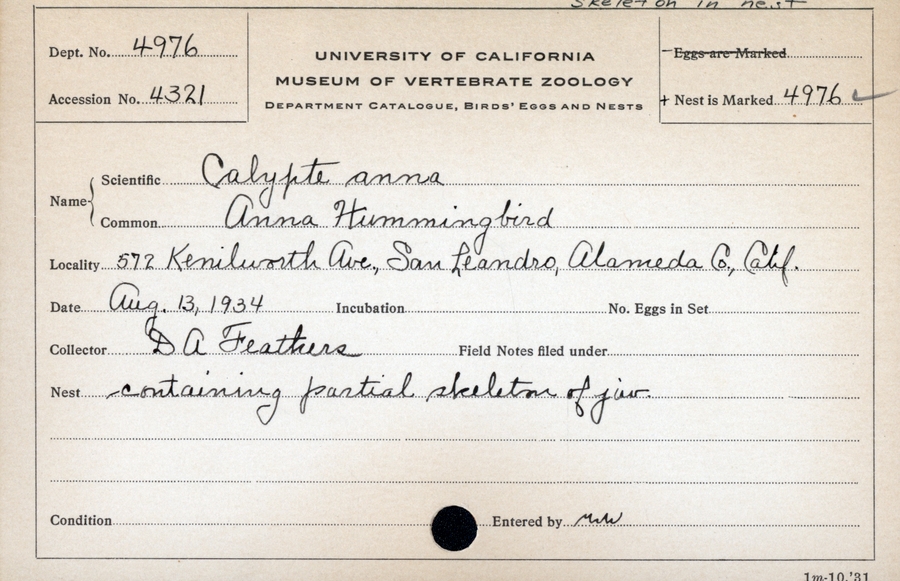 Skeleton in nest
Dept. No. 4976
Accession No. 4321
UNIVERSITY OF CALIFORNIA
MUSEUM OF VERTEBRATE ZOOLOGY
DEPARTMENT CATALOGUE, BIRDS' EGGS AND NESTS
Eggs are Marked
+ Nest is Marked 4976
Name
Scientific Calypte anna
Common Anna Hummingbird
Locality 572 Kenilworth Ave., San Leandro, Alameda Co., Calif.
Date Aug. 13, 1934 Incubation No. Eggs in Set
Collector D A Feathers Field Notes filed under
Nest containing partial skeleton of juv.
Condition Entered by
1m-10,'31